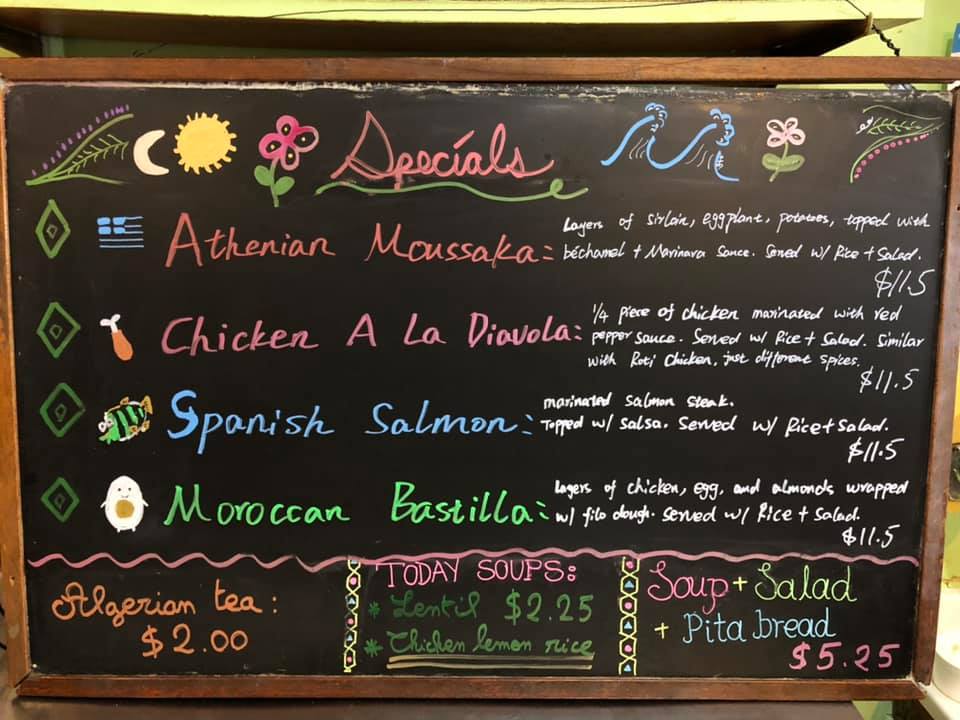 Specials
Athenian Moussaka:
Layers of sirloin, eggplant, potatoes, topped with
béchamel + Marinara sauce. Served w/ Rice + Salad.
$11.5
Chicken A La Diavola:
1/4 piece of chicken marinated with red
pepper sauce. Served w/ Rice + Salad. Similar
with Roti Chicken, just different spices.
$11.5
Spanish Salmon:
marinated salmon steak.
Topped w/ salsa. Served w/ Rice + Salad.
$11.5
Moroccan Bastilla:
Layers of chicken, egg, and almonds wrapped
w/ filo dough. Served w/ Rice + Salad.
$11.5
Algerian tea:
$2.00
TODAY SOUPS:
* Lentil $2.25
* Chicken lemon rice
Soup + Salad
+ Pita bread
$5.25